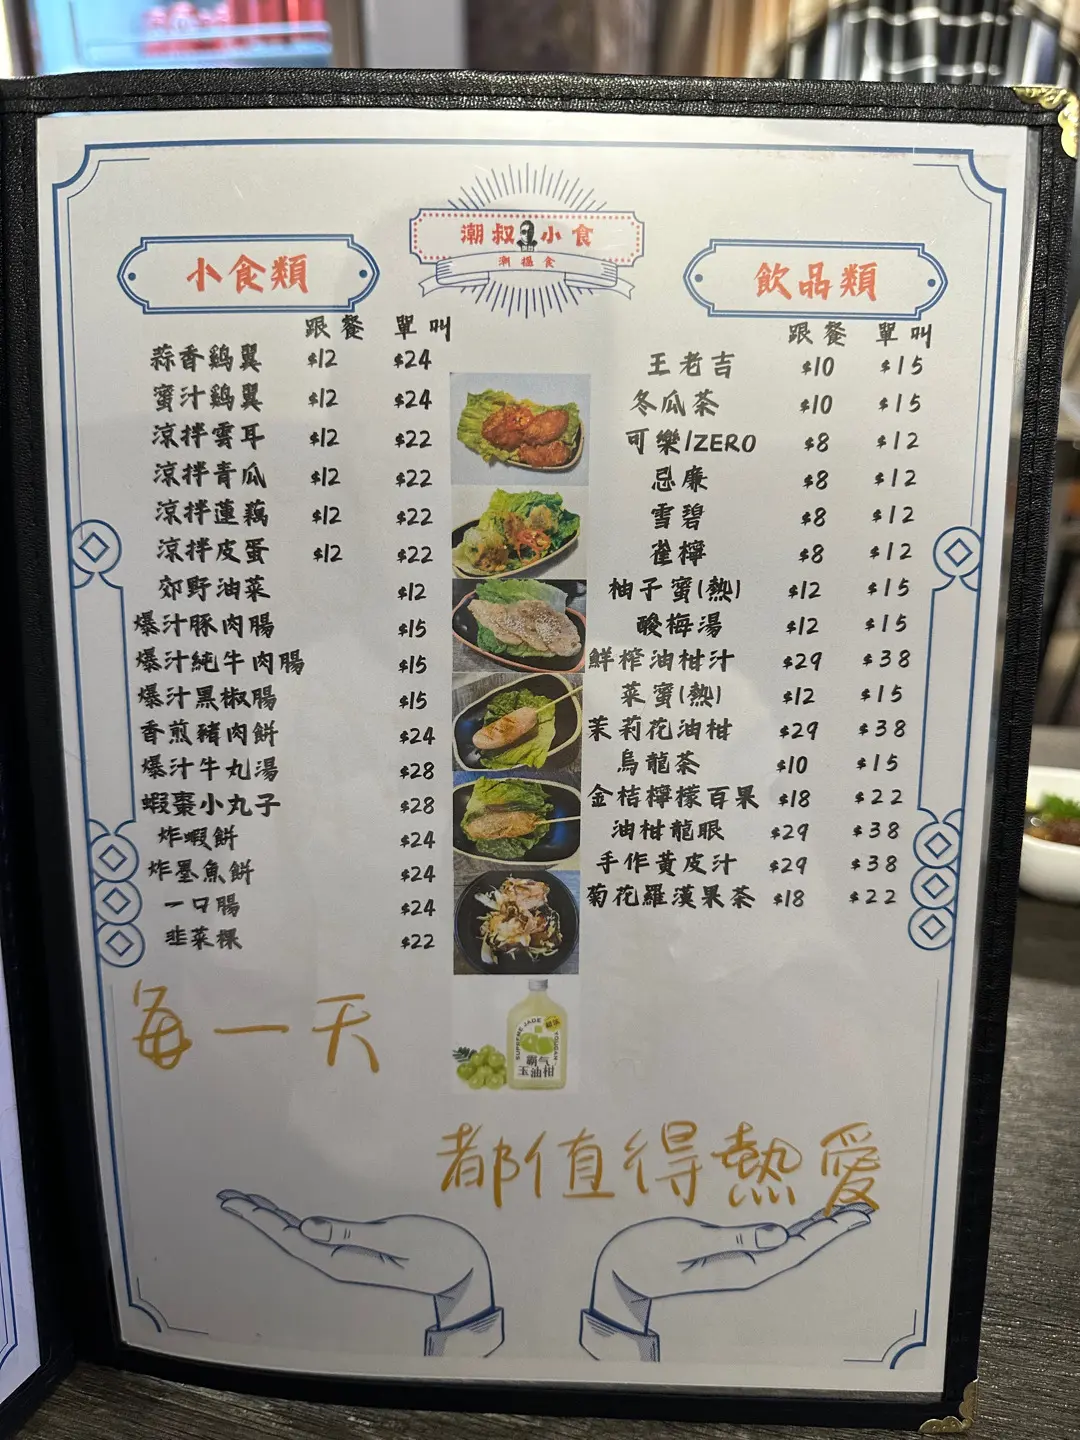 潮叔小食
潮揾食
小食類
跟餐 單叫
蒜香鷄翼 $12 $24
蜜汁鷄翼 $12 $24
涼拌雲耳 $12 $22
涼拌青瓜 $12 $22
涼拌蓮藕 $12 $22
涼拌皮蛋 $12 $22
郊野油菜 $12
爆汁豚肉腸 $15
爆汁純牛肉腸 $15
爆汁黑椒腸 $15
香煎豬肉餅 $24
爆汁牛丸湯 $28
蝦棗小丸子 $28
炸蝦餅 $24
炸墨魚餅 $24
一口腸 $24
韭菜粿 $22
飲品類
跟餐 單叫
王老吉 $10 $15
冬瓜茶 $10 $15
可樂/ZERO $8 $12
忌廉 $8 $12
雪碧 $8 $12
雀檸 $8 $12
柚子蜜(熱) $12 $15
酸梅湯 $12 $15
鮮榨油柑汁 $29 $38
菜蜜(熱) $12 $15
茉莉花油柑 $29 $38
烏龍茶 $10 $15
金桔檸檬百果 $18 $22
油柑龍眼 $29 $38
手作黃皮汁 $29 $38
菊花羅漢果茶 $18 $22
SUPREME JADE YOUGAN
霸气
玉油柑
每一天
都值得熱愛